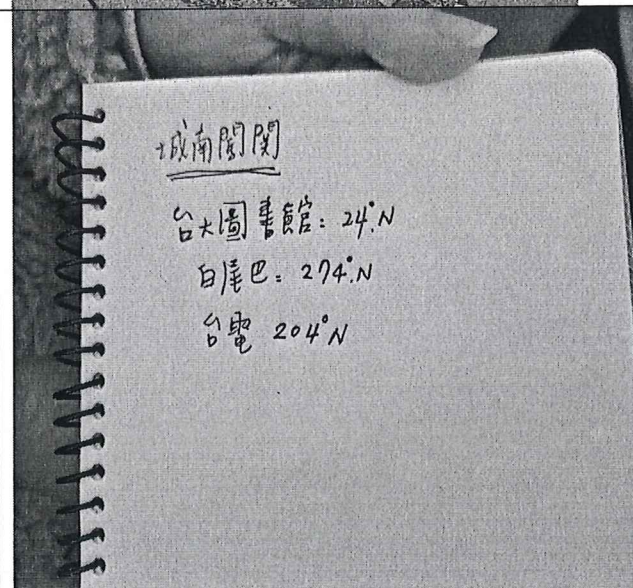 城南闖関
台大圖書館: 24°.N
白尾巴: 274°.N
台電 204°N